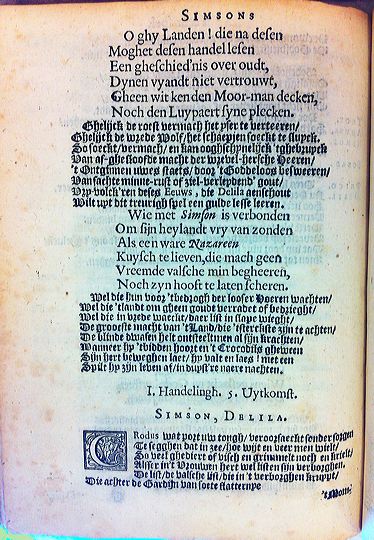 SIMSONS
O ghy Landen! die na desen
Moghet desen handel lesen
Een gheschied'nis over oudt,
Dynen vyandt niet vertrouwt,
Gheen wit ken den Moor-man decken,
Noch den Luypaert syne plecken.
Ghelijck de roest vermach het yser te verteeren/
Ghelijck de wrede Wolf/het schaepjen soeckt te sluyck.
So soeckt/vermach/en kan ooghschynelijck t'ghebruyck
Van af-ghesloofde macht der wrevel-hersche Heeren/
't Ontginnen uwes staets/door 't Goddeloos besweeren/
Van sachte minne-rust of ziel-verleydend' gout/
Ghy volck'ren deses Eeuws, die Delila aenschout
Wilt upt dit treurigh spel een gulde lesse leeren.
Wie met Simson is verbonden
Om sijn heylandt vry van zonden
Als een ware Nazareen
Kuysch te lieven, die mach geen
Vreemde valsche min begheeren,
Noch zyn hooft te laten scheren.
Wel die hun voor 'tbedrogh der looser Hoeren wachten/
Wel die 'tlandt om gheen goudt verradet of bedrieght/
Wel die in vrede waeckt/daer list in slape wieght/
De grootste macht van 't Land/die 'tsterckste zijn te achten/
De blinde dwasen helt ontsteelt men al sijn krachten/
Wanneer hy 'tbidden hoort en 't Crocodils gheween
Sijn hert beweghen laet/hy valt en laes! met een
Spilt hy zijn leven af/in duyst're naere nachten.
I. Handelingh. 5. Uytkomst.
SIMSON, DELILA.
CRodus wat port uw tongh/ veroorsaeckt sonder sorgen
Te segghen dat in zee/hoe wijt en veer men vielt/
So veel ghediert of visch en grimmelt noch en krielt/
Alser in 't Vrouwen hert wel listen sijn verborghen.
De list/de valsche list/die in 't verborghen kruypt/
Die achter de Gardijn van soete flatternye
't Mom-